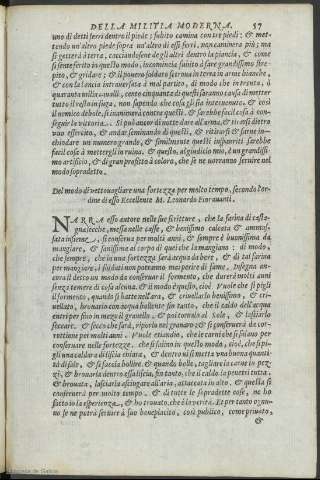 DELLA MILITIA MODERNA. 57
uno di detti ferri dentro il piede: subito camina contre piedi: & met-
tendo un'altro piede sopra un'altro di essi ferri, non caminera più; ma
si gettera à terra, cacciandosene de gl'altri dentro la pancia; & come
si sente ferito in questo modo, incomincia subito à fare grandissimo stre-
pito, & gridare; & il povero soldato si trova in terra in arme bianche,
& con la lancia intraversata à mal partito, di modo che intrando, i
quaranta milia cavalli, cento cinquanta di questi saranno causa di metter
tutto il resto in fuga, non sapendo che cosa gli sia intervenuto, & così
il nemico debole, si inanimerà contra questi, & sarebbe facil cosa à con-
seguir la vittoria. Si può ancor di notte dare all'arma, & tirarsi dietro
uno essercito, & andar seminando di questi, & ritirarsi & farne in-
chiodar un numero grande, & similmente questi inspauriti sarebbe
facil cosa à mettergli in ruina; & questo, al giudicio mio, è un grandiss-
mo artificio, & di gran profitto à coloro, che se ne vorranno servire nel
modo sopradetto.
Del modo di vettovagliare una fortezza per molto tempo, secondo l'or-
dine di esso Eccellente M. Leonardo Fioravanti.
NARRA esso autore nelle sue scritture, che la farina di casta-
gna secche, messa nelle casse, & benissimo calcata & ammas-
sata insieme, si conserva per molti anni, & sempre è buonissima da
mangiare, & sanissima al corpo di quei che la mangiano: di modo,
che sempre, che in una fortezza sarà acqua da bere, & di tal farina
per mangiare, i soldati non potranno mai perire di fame. Insegna an-
cora il detto un modo da conservare il formento, che durerà molti anni
senza temere di cosa alcuna. & il modo è questo, cioè Vuole che si pigli
il formento, quando si batte nell'ara, & crivellarlo benissimo, & cri-
vellato, brovarlo con acqua bollente fin tanto, che il caldo dell'acqua
entri per fino in mezo il granello, & poi tornin al Sole, & lasciarlo
seccare. & secco che sarà, riporlo nei granari & si conserverà da cor-
ruttione per molti anni. Vuole etiandio, che le carni che si salano per
conservare nelle fortezze, che si salino in questo modo, cioè, che si pi-
gli una caldara di salsa chiara, & dentro vi si metta una buona quanti-
tà di sale, & si faccia bollire & quando bolle, tagliare la carne in pez-
zi, & brovarla dentro essa salsa, fin tanto, che il caldo la penetri tutta.
& brovata, lasciarla asciugare all'aria, attaccata in alto, & questa si
conserverà per molto tempo. & di tutte le sopradette cose, ne ho
fatto la esperienza, & ho trovato, che è la verità. Et per tanto ognu-
no se ne potrà servire à suo beneplacito, così publico, come privato,
&